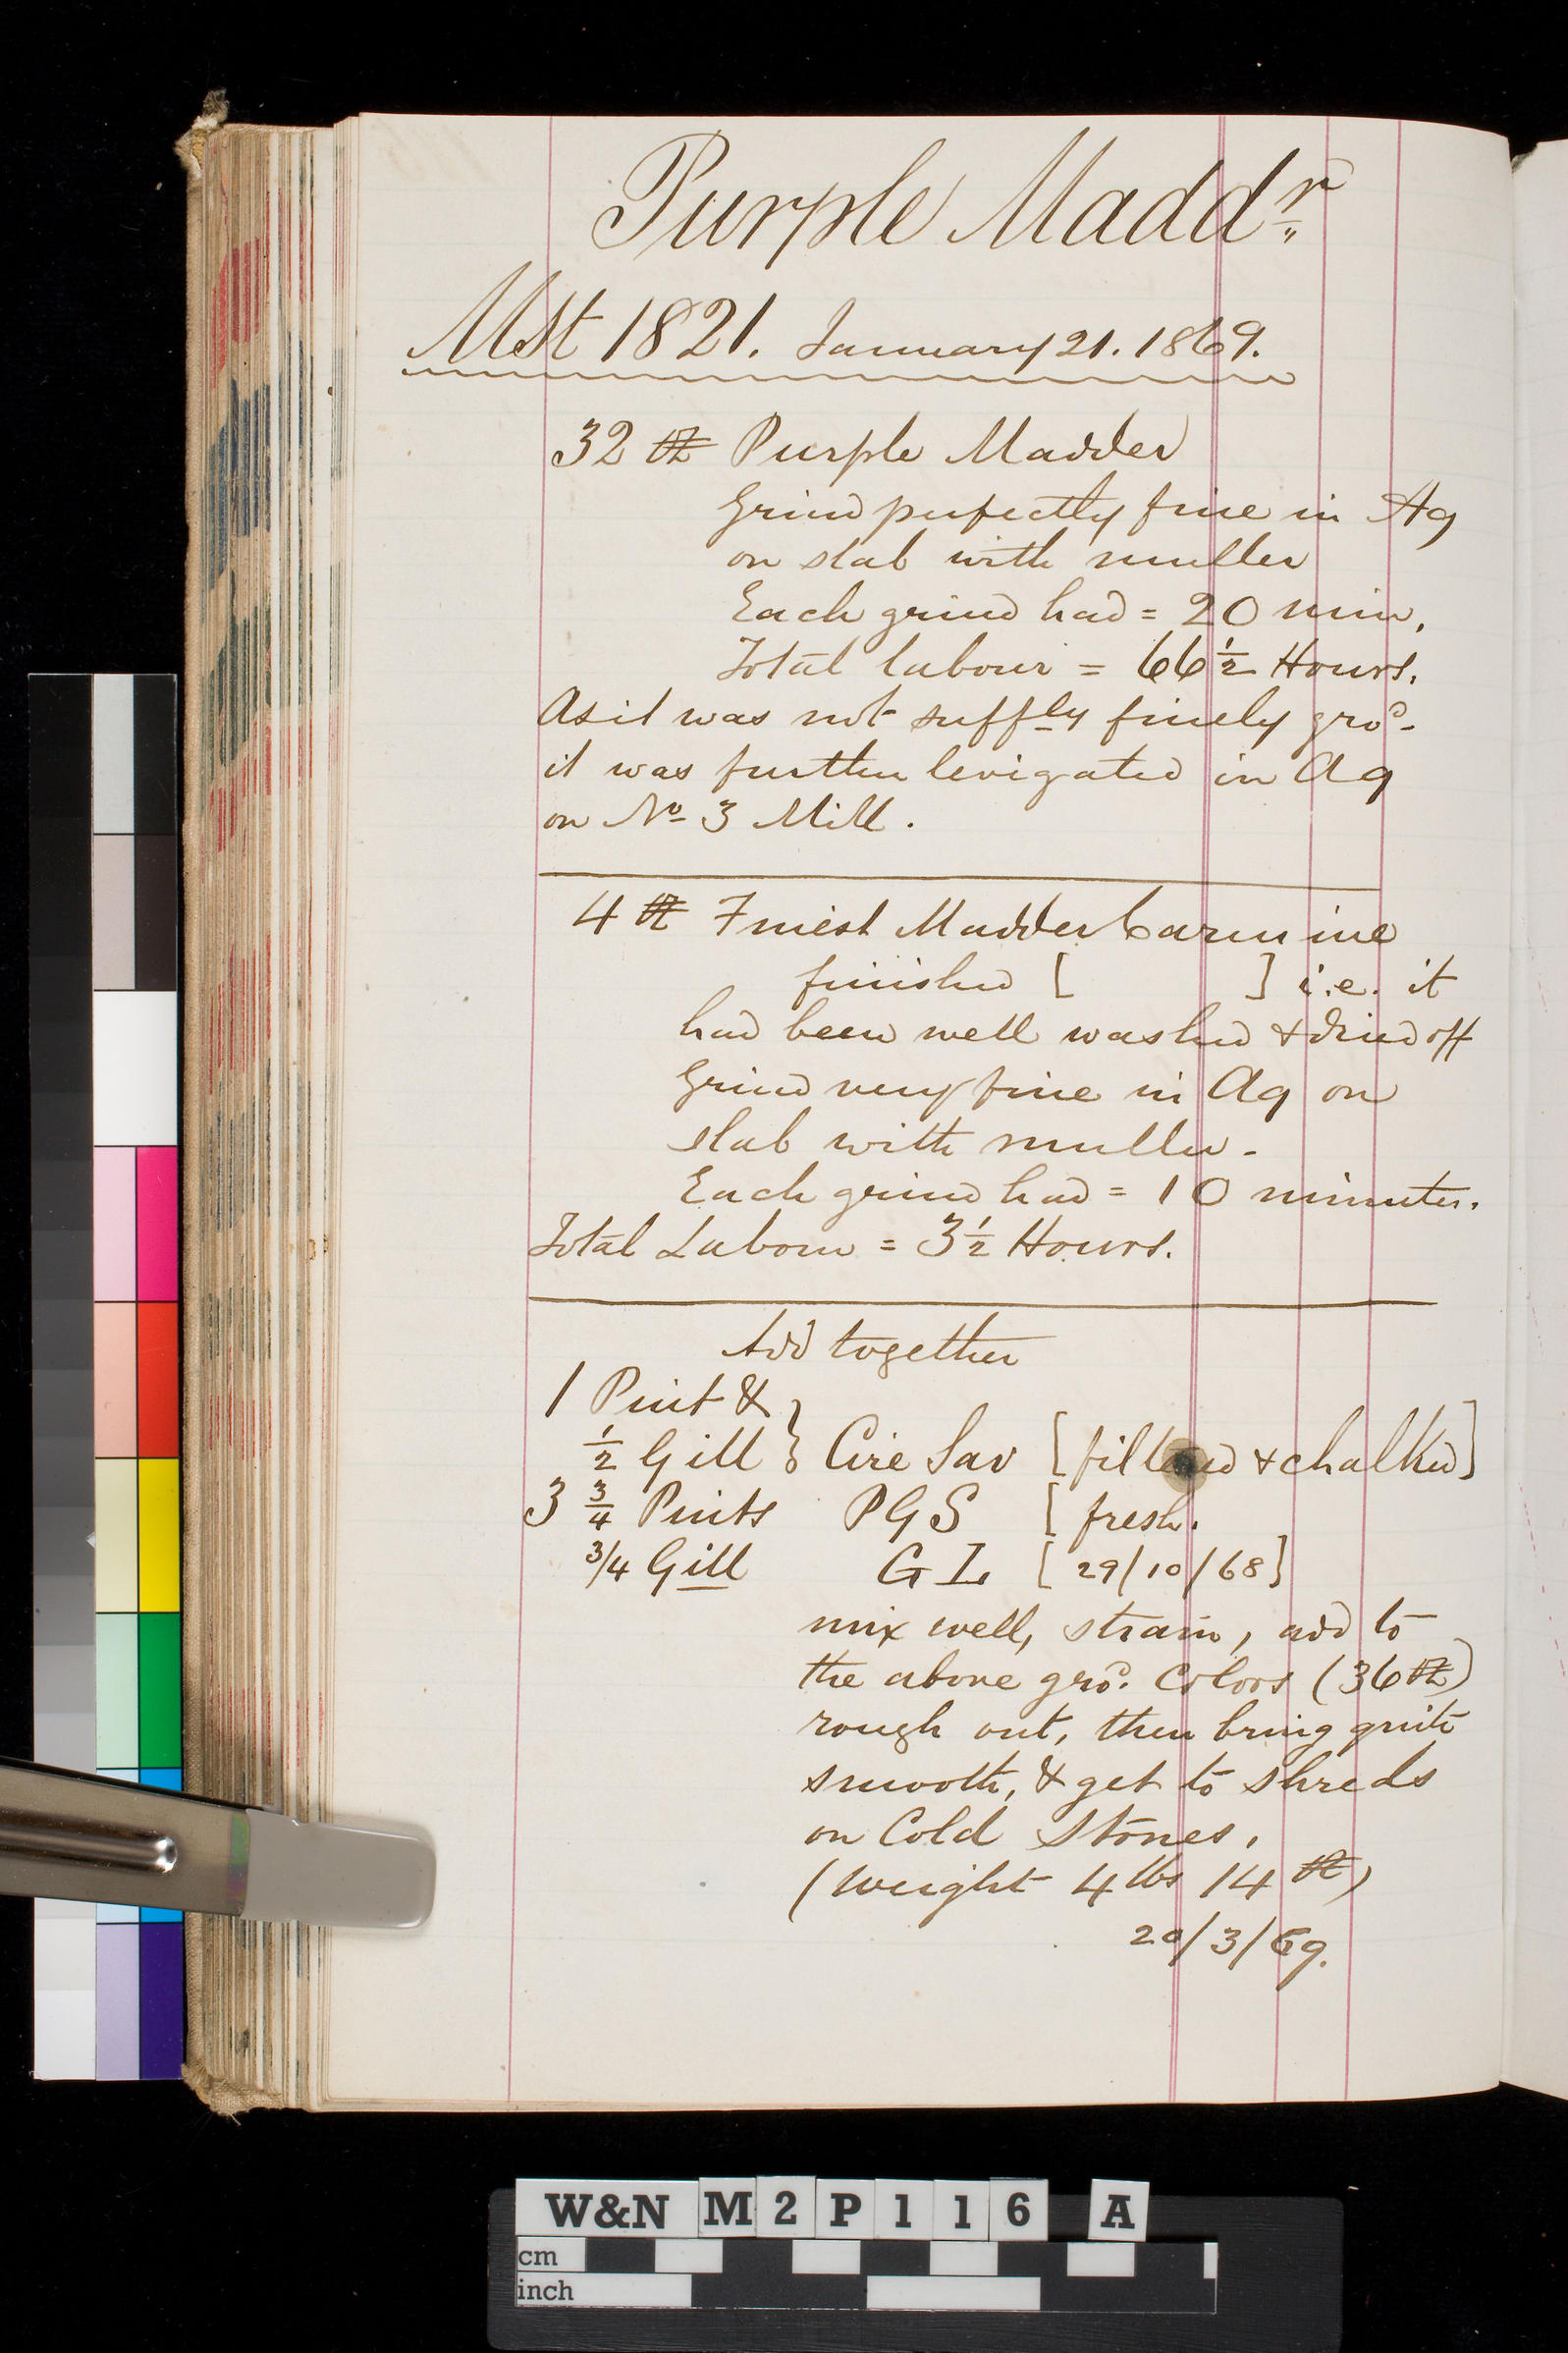 Purple Maddr
Mst 1821. January 21. 1869.
32 ℥ Purple Madder
Grind perfectly fine in Aq
on slab with muller
Each grind had = 20 min.
Total labour = 66½ Hours.
As it was not suffly finely grod.
it was further levigated in Aq
on No 3 Mill.
4 ℥ Finest Madder Carmine
finished [ ] i.e. it
had been well washed & dried off
Grind very fine in Aq on
slab with muller.
Each grind had = 10 minutes.
Total Labour = 3½ Hours.
Add together
1 Pint &
½ Gill } Cire Sav [filtered & chalked]
3 ¾ Pints PGS [fresh.
3/4 Gill GL [29/10/68]
mix well, strain, add to
the above grod. Colors (36 ℥)
rough out, then bring quite
smooth, & get to shreds
on Cold Stones.
(Weight 4 lbs 14 ℥)
20/3/69.
W&N M2P116 A
cm
inch